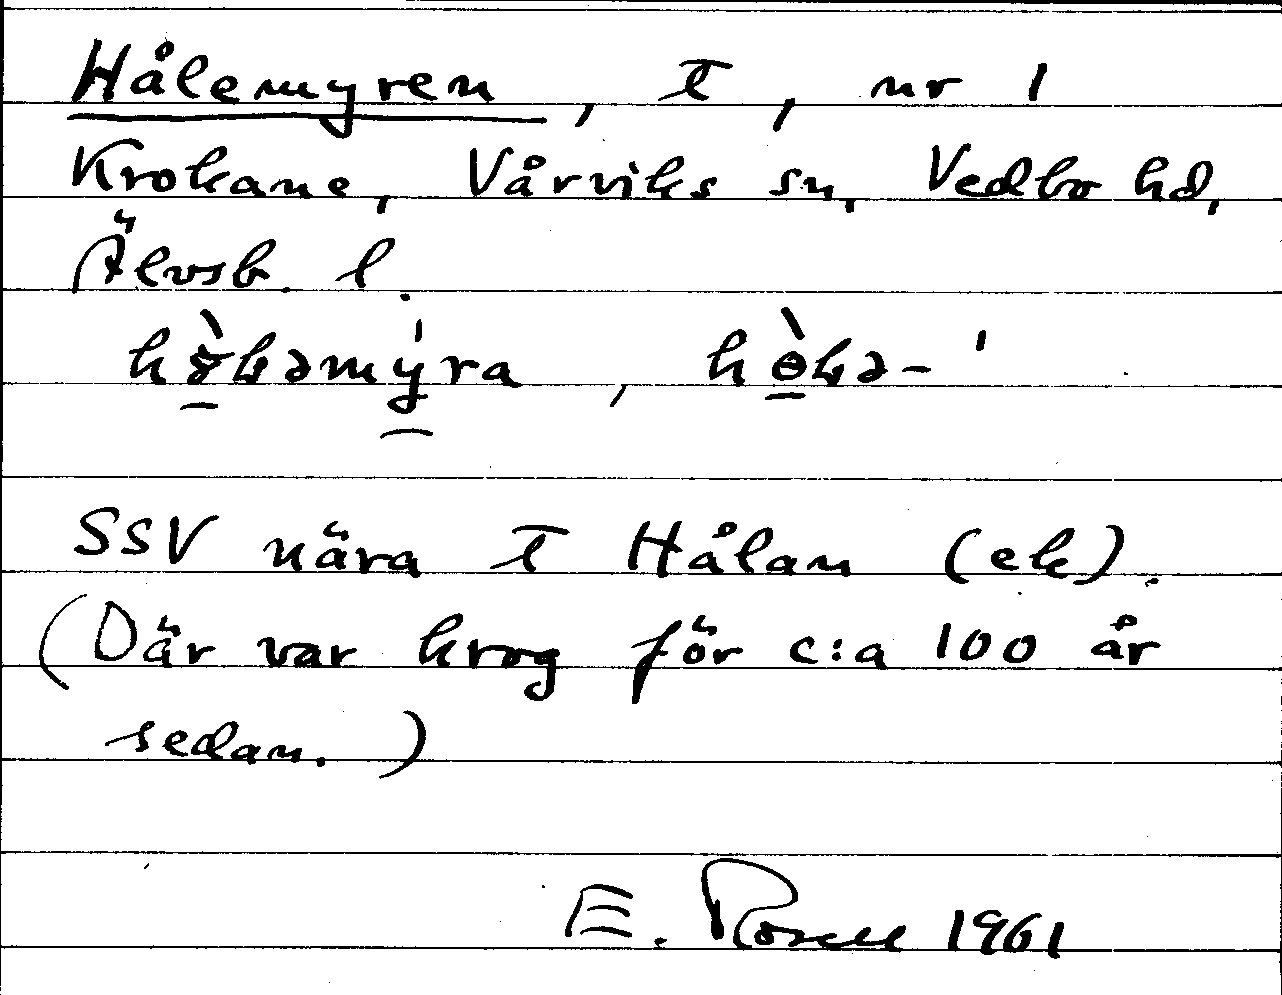 Hålemyren, T, nr 1
Krokane, Vårviks sn, Vedbo hd,
Älvsb. l.
SSV nära T Hålan (ek).
(Där var krog för c:a 100 år
sedan.)
E. Rosell 1961